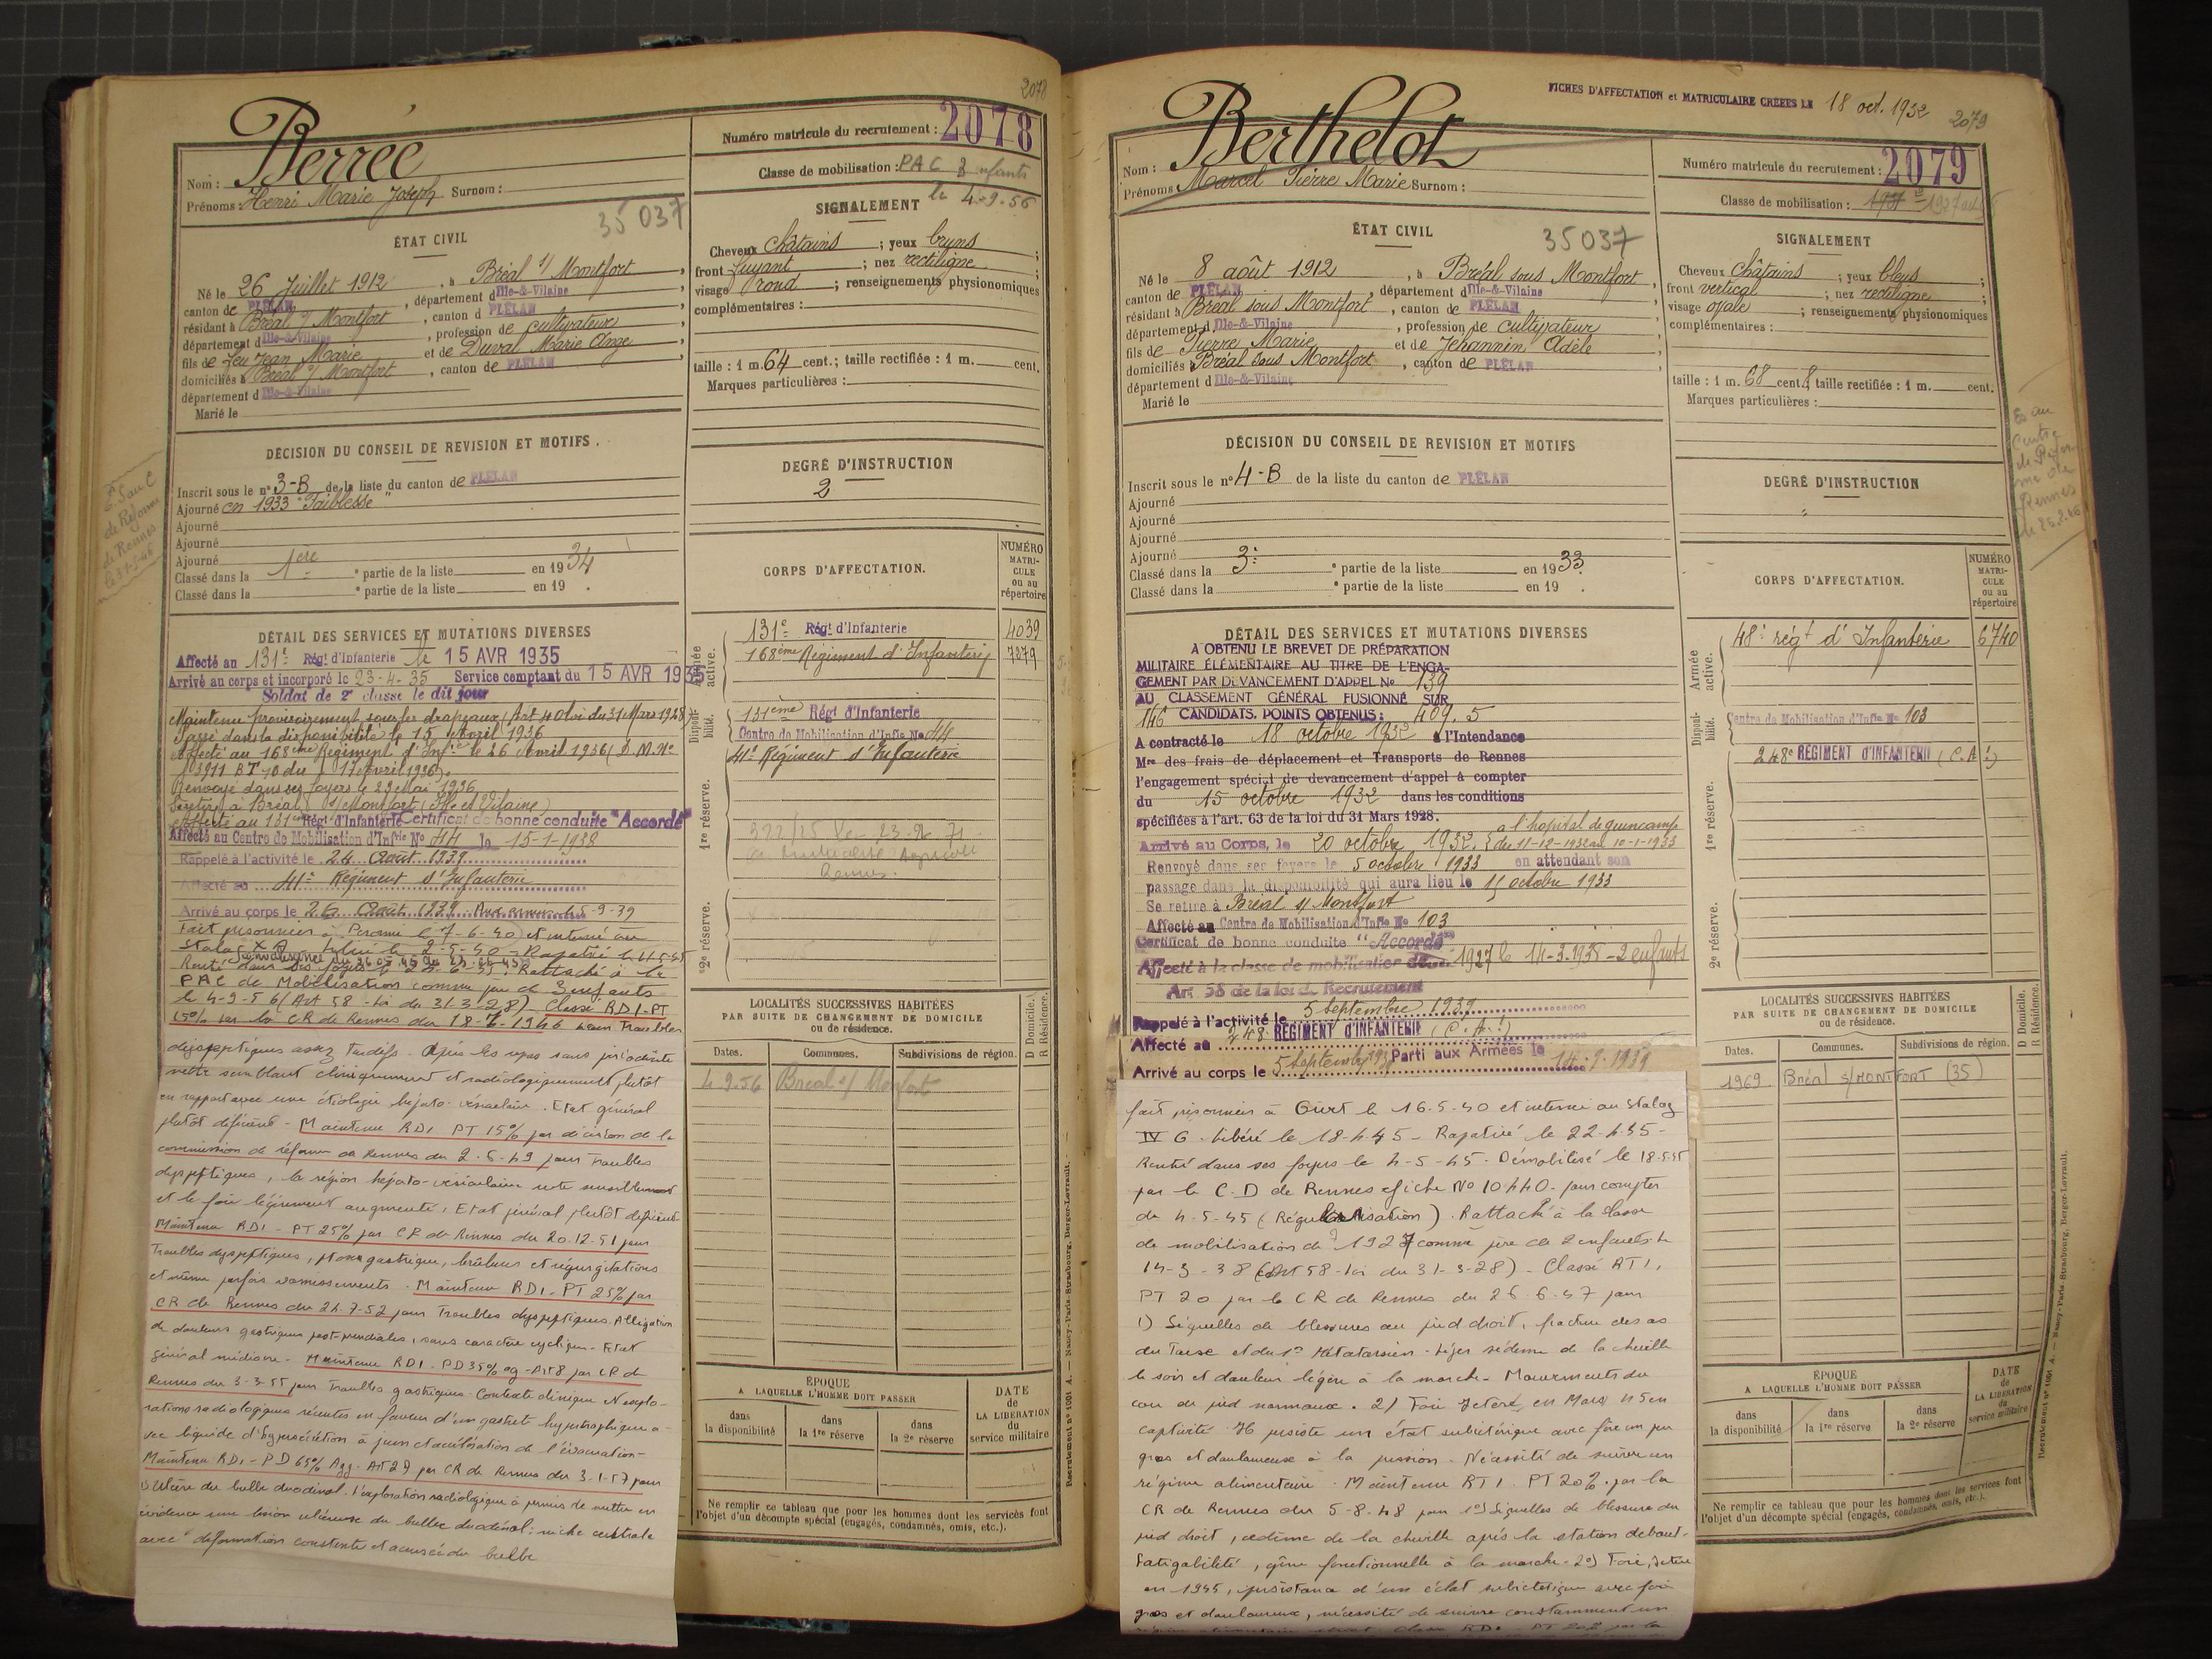 2078
Numéro matricule du recrutement : 2078
Nom : Berrée
Prénoms : Henri Marie Joseph Surnom :
Classe de mobilisation : PAC 3 enfants
le 4-9-56
35037
ÉTAT CIVIL
Né le 26 Juillet 1912, à Bréal s/ Montfort,
canton de PLÉLAN, département d Ille-&-Vilaine
résidant à Bréal s/ Montfort, canton d PLÉLAN
département d Ille-&-Vilaine, profession de cultivateur
fils de feu Jean Marie et de Duval Marie Ange,
domiciliés à Bréal s/ Montfort, canton de PLÉLAN
département d Ille-&-Vilaine
Marié le
SIGNALEMENT
Cheveux châtains ; yeux bruns ;
front fuyant ; nez rectiligne ;
visage rond ; renseignements physionomiques
complémentaires :
taille : 1 m. 64 cent.; taille rectifiée : 1 m. cent.
Marques particulières :
DÉCISION DU CONSEIL DE REVISION ET MOTIFS.
Inscrit sous le n° 3-B de la liste du canton de PLÉLAN
Ajourné en 1933 "Faiblesse"
Ajourné
Ajourné
Ajourné
Classé dans la 1ère partie de la liste en 1934
Classé dans la partie de la liste en 19 .
de Réforme
de Rennes
DEGRÉ D'INSTRUCTION
2
CORPS D'AFFECTATION.
NUMÉRO MATRICULE ou au répertoire
Armée active.
131e Régt d'Infanterie 4039
168ème Régiment d'Infanterie 7279
Disponibilité.
131ème Régt d'Infanterie
Centre de Mobilisation d'Infie No 44
41e Régiment d'Infanterie
1re réserve.
2e réserve.
DÉTAIL DES SERVICES ET MUTATIONS DIVERSES
Affecté au 131e Régt d'Infanterie le 15 AVR 1935
Arrivé au corps et incorporé le 23-4-35 Service comptant du 15 AVR 1935
Soldat de 2e classe le dit jour
Maintenu provisoirement sous les drapeaux (Art 40 loi du 31 Mars 1928
Passé dans la disponibilité le 15 Avril 1936
Affecté au 168ème Régiment d'Infie le 26 Avril 1936 (D.M. No
13911 BT 10 du 17 Avril 1936).
Renvoyé dans ses foyers le 29 Mai 1936
Se retire à Bréal s/ Montfort (Ille et Vilaine)
Affecté au 131ème Régt d'Infanterie Certificat de bonne conduite "Accordé"
Affecté au Centre de Mobilisation d'Infrie No 44 le 15-1-1938
Rappelé à l'activité le 24 Août 1939
Affecté au 41e Régiment d'Infanterie
Arrivé au corps le 26 Août 1939
Fait prisonnier à Peronne le 7-6-40 et interné au
PAC de Mobilisation comme père de 3 enfants
le 4-9-56 (Art 58 - loi du 31.3.28). Classé RD1-PT
15% par la CR de Rennes du 18-7-1946 pour Troubles
dyspeptiques assez tardifs - Après les repas sans périodicité
nette semblant cliniquement et radiologiquement plutôt
en rapport avec une étiologie hépato-vésiculaire. Etat général
plutôt déficient - Maintenu RD1 PT 15% par décision de la
commission de réforme de Rennes du 2-6-49 pour Troubles
dyspeptiques, la région hépato-vésiculaire reste sensiblement
et le foie légèrement augmenté, Etat général plutôt déficient
Maintenu RD1 - PT 25% par CR de Rennes du 20.12.51 pour
Troubles dyspeptiques, ptose gastrique, brûlures et régurgitations
et même parfois vomissements - Maintenu RD1 - PT 25% par
CR de Rennes du 24.7.52 pour Troubles dyspeptiques. Allégation
de douleurs gastriques post-prandiales, sans caractère cyclique - Etat
général médiocre - Maintenu RD1 - PD 35% ag - Art 8 par CR de
Rennes du 3-3-55 pour Troubles gastriques. Contexte clinique. N explo-
rations radiologiques récentes en faveur d'un gastrite hypertrophique a-
vec liquide d'hypersécrétion à jeun et accélération de l'évacuation -
Maintenu RD1 - PD 65% Agg - Art 27 par CR de Rennes du 3-1-57 pour
1) Ulcère du bulbe duodénal. l'exploration radiologique à permis de mettre en
évidence une lésion ulcéreuse du bulbe duodénal : niche centrale
avec déformation constante et accusée du bulbe
LOCALITÉS SUCCESSIVES HABITÉES
PAR SUITE DE CHANGEMENT DE DOMICILE
ou de résidence.
D Domicile. R Résidence.
Dates. Communes. Subdivisions de région.
4.9.56 Bréal s/ Monfort
ÉPOQUE
A LAQUELLE L'HOMME DOIT PASSER
dans la disponibilité
dans la 1re réserve
dans la 2e réserve
DATE de LA LIBERATION du service militaire
Ne remplir ce tableau que pour les hommes dont les services font
l'objet d'un décompte spécial (engagés, condamnés, omis, etc.).
Recrutement n° 1001 A. — Nancy-Paris-Strasbourg, Berger-Levrault.
FICHES D'AFFECTATION et MATRICULAIRE CRÉÉES LE 18 oct. 1932
2079
Numéro matricule du recrutement : 2079
Nom : Berthelot
Prénoms : Marcel Pierre Marie Surnom :
Classe de mobilisation : 1927
35037
ÉTAT CIVIL
Né le 8 août 1912, à Bréal sous Montfort,
canton de PLÉLAN, département d Ille-&-Vilaine
résidant à Bréal sous Montfort, canton de PLÉLAN
département d Ille-&-Vilaine, profession de cultivateur
fils de Pierre Marie et de Jehannin Adèle
domiciliés Bréal sous Montfort, canton de PLÉLAN
département d Ille-&-Vilaine
Marié le
SIGNALEMENT
Cheveux châtains ; yeux bleus ;
front vertical ; nez rectiligne ;
visage ovale ; renseignements physionomiques
complémentaires :
taille : 1 m. 68 cent. 8, taille rectifiée : 1 m. cent.
Marques particulières :
DÉCISION DU CONSEIL DE REVISION ET MOTIFS
Inscrit sous le n° 4-B de la liste du canton de PLÉLAN
Ajourné
Ajourné
Ajourné
Ajourné
Classé dans la 3e partie de la liste en 1933
Classé dans la partie de la liste en 19 .
DEGRÉ D'INSTRUCTION
"
CORPS D'AFFECTATION.
NUMÉRO MATRICULE ou au répertoire
Armée active.
48e régt d'Infanterie 6740
Disponibilité.
Centre de Mobilisation d'Infie No 103
248e RÉGIMENT D'INFANTERIE (C.A.1)
1re réserve.
2e réserve.
DÉTAIL DES SERVICES ET MUTATIONS DIVERSES
A OBTENU LE BREVET DE PRÉPARATION
MILITAIRE ÉLÉMENTAIRE AU TITRE DE L'ENGA-
GEMENT PAR DEVANCEMENT D'APPEL No 139
AU CLASSEMENT GÉNÉRAL FUSIONNÉ SUR
146 CANDIDATS. POINTS OBTENUS : 409.5
A contracté le 18 octobre 1932 à l'Intendance
Mre des frais de déplacement et Transports de Rennes
l'engagement spécial de devancement d'appel à compter
du 15 octobre 1932 dans les conditions
spécifiées à l'art. 63 de la loi du 31 Mars 1928.
Arrivé au Corps, le 20 octobre 1932. à l'hopital de Guincamp du 11-12-1932 au 10-1-1933
Renvoyé dans ses foyers le 5 octobre 1933 en attendant son
passage dans la disponibilité qui aura lieu le 15 octobre 1933
Se retire à Bréal s/ Montfort
Affecté au Centre de Mobilisation d'Infie No 103
Certificat de bonne conduite "Accordé"
Affecté à la classe de mobilisation de 1927 le 14-3-1938 - 2 enfants
Art 58 de la loi du Recrutement
Rappelé à l'activité le 5 Septembre 1939
Affecté au 248e RÉGIMENT D'INFANTERIE (C.A.1)
Arrivé au corps le 5 Septembre 1939 Parti aux Armées le 14-9-1939
fait prisonnier à Givet le 16-5-40 et interné au Stalag
IV G. Libéré le 18-4-45 - Rapatrié le 22-4-45 -
Rentré dans ses foyers le 4-5-45. Démobilisé le 18-5-45
par le C.D de Rennes fiche No 10440 - pour compter
du 4-5-45 (Régularisation). Rattaché à la classe
de mobilisation de 1927 comme père de 2 enfants le
14-3-38 (Art 58 - loi du 31-3-28) - Classé RT1,
PT 20 par la CR de Rennes du 26-6-47 pour
1) Séquelles de blessures au pied droit, fracture des os
du Tarse et du 1er Métatarsien - Léger œdème de la cheville
le soir et douleur légère à la marche - Mouvements du
cou de pied normaux. 2) Foie Ictère en Mars 45 en
captivité. Il persiste un état subictérique avec foie un peu
gros et douloureux à la pression. Nécessité de suivre un
régime alimentaire. Maintenu RT1. PT 20% par la
CR de Rennes du 5-8-48 pour 1°) Séquelles de blessure du
pied droit, œdème de la cheville après la station debout -
Fatigabilité, gêne fonctionnelle à la marche - 2°) Foie, Ictère
en 1945, persistance d'un état subictérique avec foie
gros et douloureux, nécessité de suivre constamment un
LOCALITÉS SUCCESSIVES HABITÉES
PAR SUITE DE CHANGEMENT DE DOMICILE
ou de résidence.
D Domicile. R Résidence.
Dates. Communes. Subdivisions de région.
1969 Bréal s/MONTFORT (35)
ÉPOQUE
A LAQUELLE L'HOMME DOIT PASSER
dans la disponibilité
dans la 1re réserve
dans la 2e réserve
DATE de LA LIBÉRATION du service militaire
Ne remplir ce tableau que pour les hommes dont les services font
l'objet d'un décompte spécial (engagés, condamnés, omis, etc.).
Recrutement n° 1001 A. — Nancy-Paris-Strasbourg, Berger-Levrault.